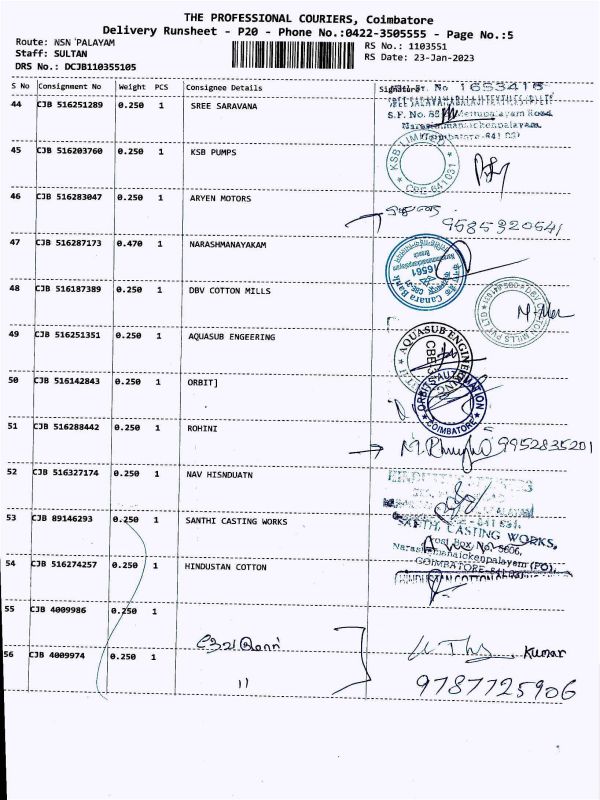 THE PROFESSIONAL COURIERS, Coimbatore
Delivery Runsheet - P20 - Phone No.:0422-3505555 - Page No.:5
Route: NSN PALAYAM
Staff: SULTAN
DRS No.: DCJB110355105
RS No.: 1103551
RS Date: 23-Jan-2023
S No Consignment No Weight PCS Consignee Details Signature
44 CJB 516251289 0.250 1 SREE SARAVANA
No 1653415
S.F. No. Mettupalayam Road
Narasimhanaickenpalayam
45 CJB 516203760 0.250 1 KSB PUMPS
KSB LIMITED CBE-641 031
46 CJB 516283047 0.250 1 ARYEN MOTORS
9585320541
47 CJB 516287173 0.470 1 NARASHMANAYAKAM
Canara Bank
16561
48 CJB 516187389 0.250 1 DBV COTTON MILLS
49 CJB 516251351 0.250 1 AQUASUB ENGEERING
AQUASUB ENGINE
50 CJB 516142843 0.250 1 ORBIT]
ORBITS AUTOMATION
COIMBATORE
51 CJB 516288442 0.250 1 ROHINI
9952835201
52 CJB 516327174 0.250 1 NAV HISNDUATN
53 CJB 89146293 0.250 1 SANTHI CASTING WORKS
CASTING WORKS,
Post Box No. 5606,
Narasimhanaickenpalayam (PO),
COIMBATORE-641 031
54 CJB 516274257 0.250 1 HINDUSTAN COTTON
HINDUSTAN COTTON
55 CJB 4009986 0.250 1
Kumar
56 CJB 4009974 0.250 1 "
9787725906